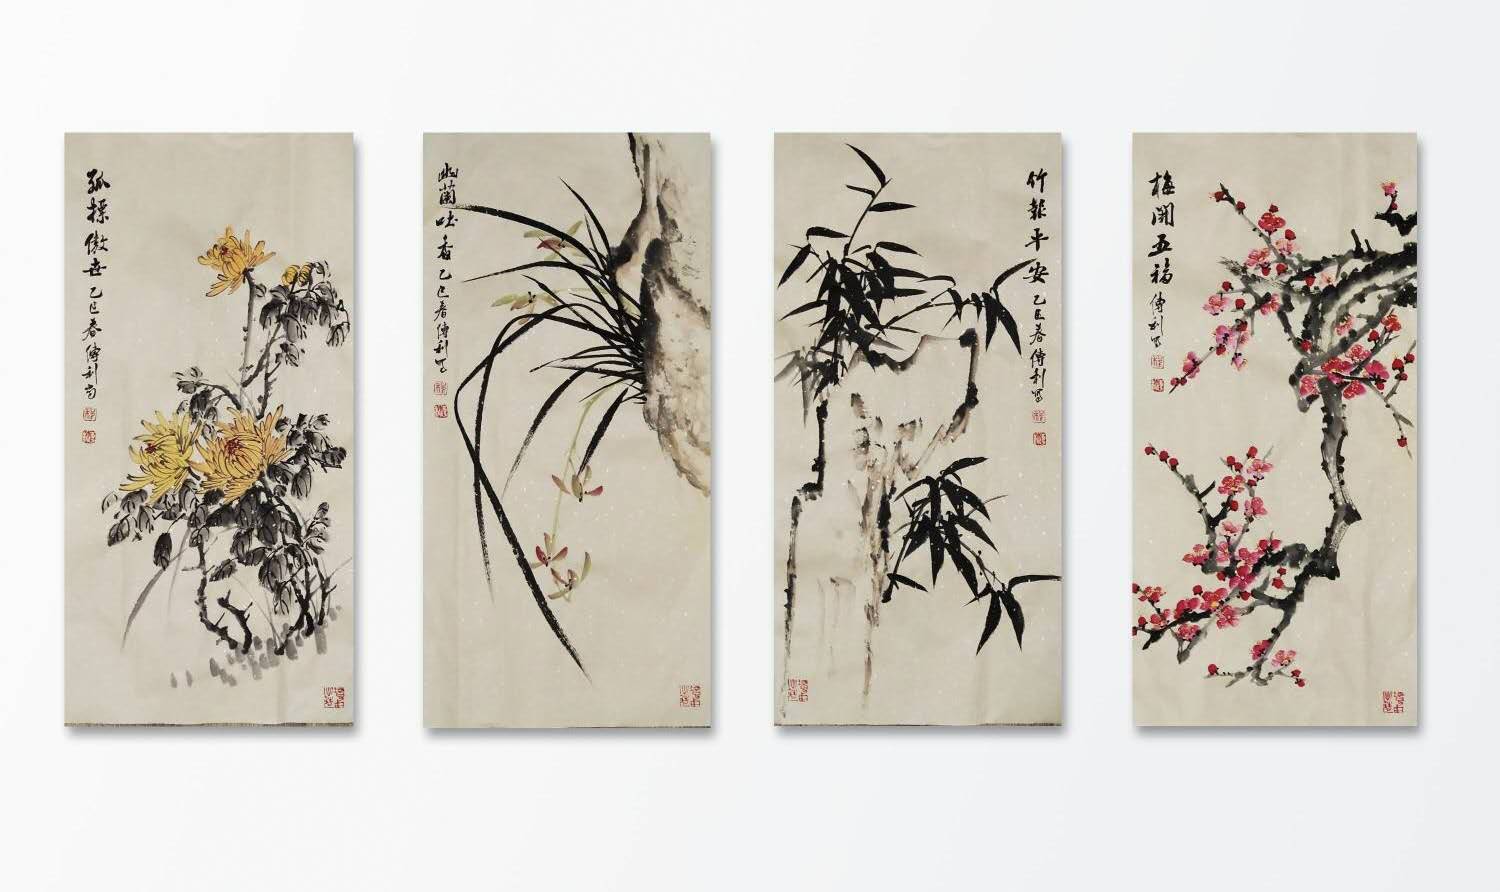 孤標傲世 乙巳春 傅利写
幽蘭吐香 乙巳春 傅利写
竹報平安 乙巳春 傅利写
梅開五福 傅利写